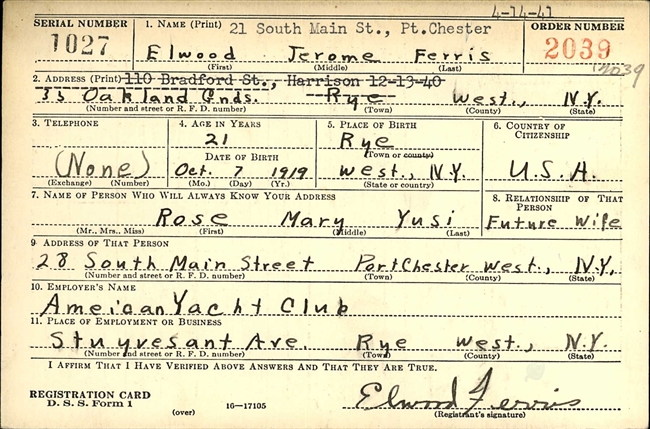 4-14-41
SERIAL NUMBER 1. NAME (Print) 21 South Main St., Pt.Chester ORDER NUMBER
1027 Elwood Jerome Ferris 2039
(First) (Middle) (Last) 2039
2. ADDRESS (Print) 110 Bradford St., Harrison 12-13-40
35 Oakland Gnds. Rye West., N.Y.
(Number and street or R. F. D. number) (Town) (County) (State)
3. TELEPHONE 4. AGE IN YEARS 5. PLACE OF BIRTH 6. COUNTRY OF CITIZENSHIP
21 Rye
DATE OF BIRTH (Town or county)
(None) Oct. 7 1919 West., N.Y. U.S.A.
(Exchange) (Number) (Mo.) (Day) (Yr.) (State or country)
7. NAME OF PERSON WHO WILL ALWAYS KNOW YOUR ADDRESS 8. RELATIONSHIP OF THAT PERSON
Rose Mary Yusi Future Wife
(Mr., Mrs., Miss) (First) (Middle) (Last)
9. ADDRESS OF THAT PERSON
28 South Main Street PortChester West., N.Y.
(Number and street or R. F. D. number) (Town) (County) (State)
10. EMPLOYER'S NAME
Ameican Yacht Club
11. PLACE OF EMPLOYMENT OR BUSINESS
Stuyvesant Ave. Rye West., N.Y.
(Number and street or R. F. D. number) (Town) (County) (State)
I AFFIRM THAT I HAVE VERIFIED ABOVE ANSWERS AND THAT THEY ARE TRUE.
REGISTRATION CARD
D. S. S. Form 1 Elwood Ferris
(over) 16—17105 (Registrant's signature)